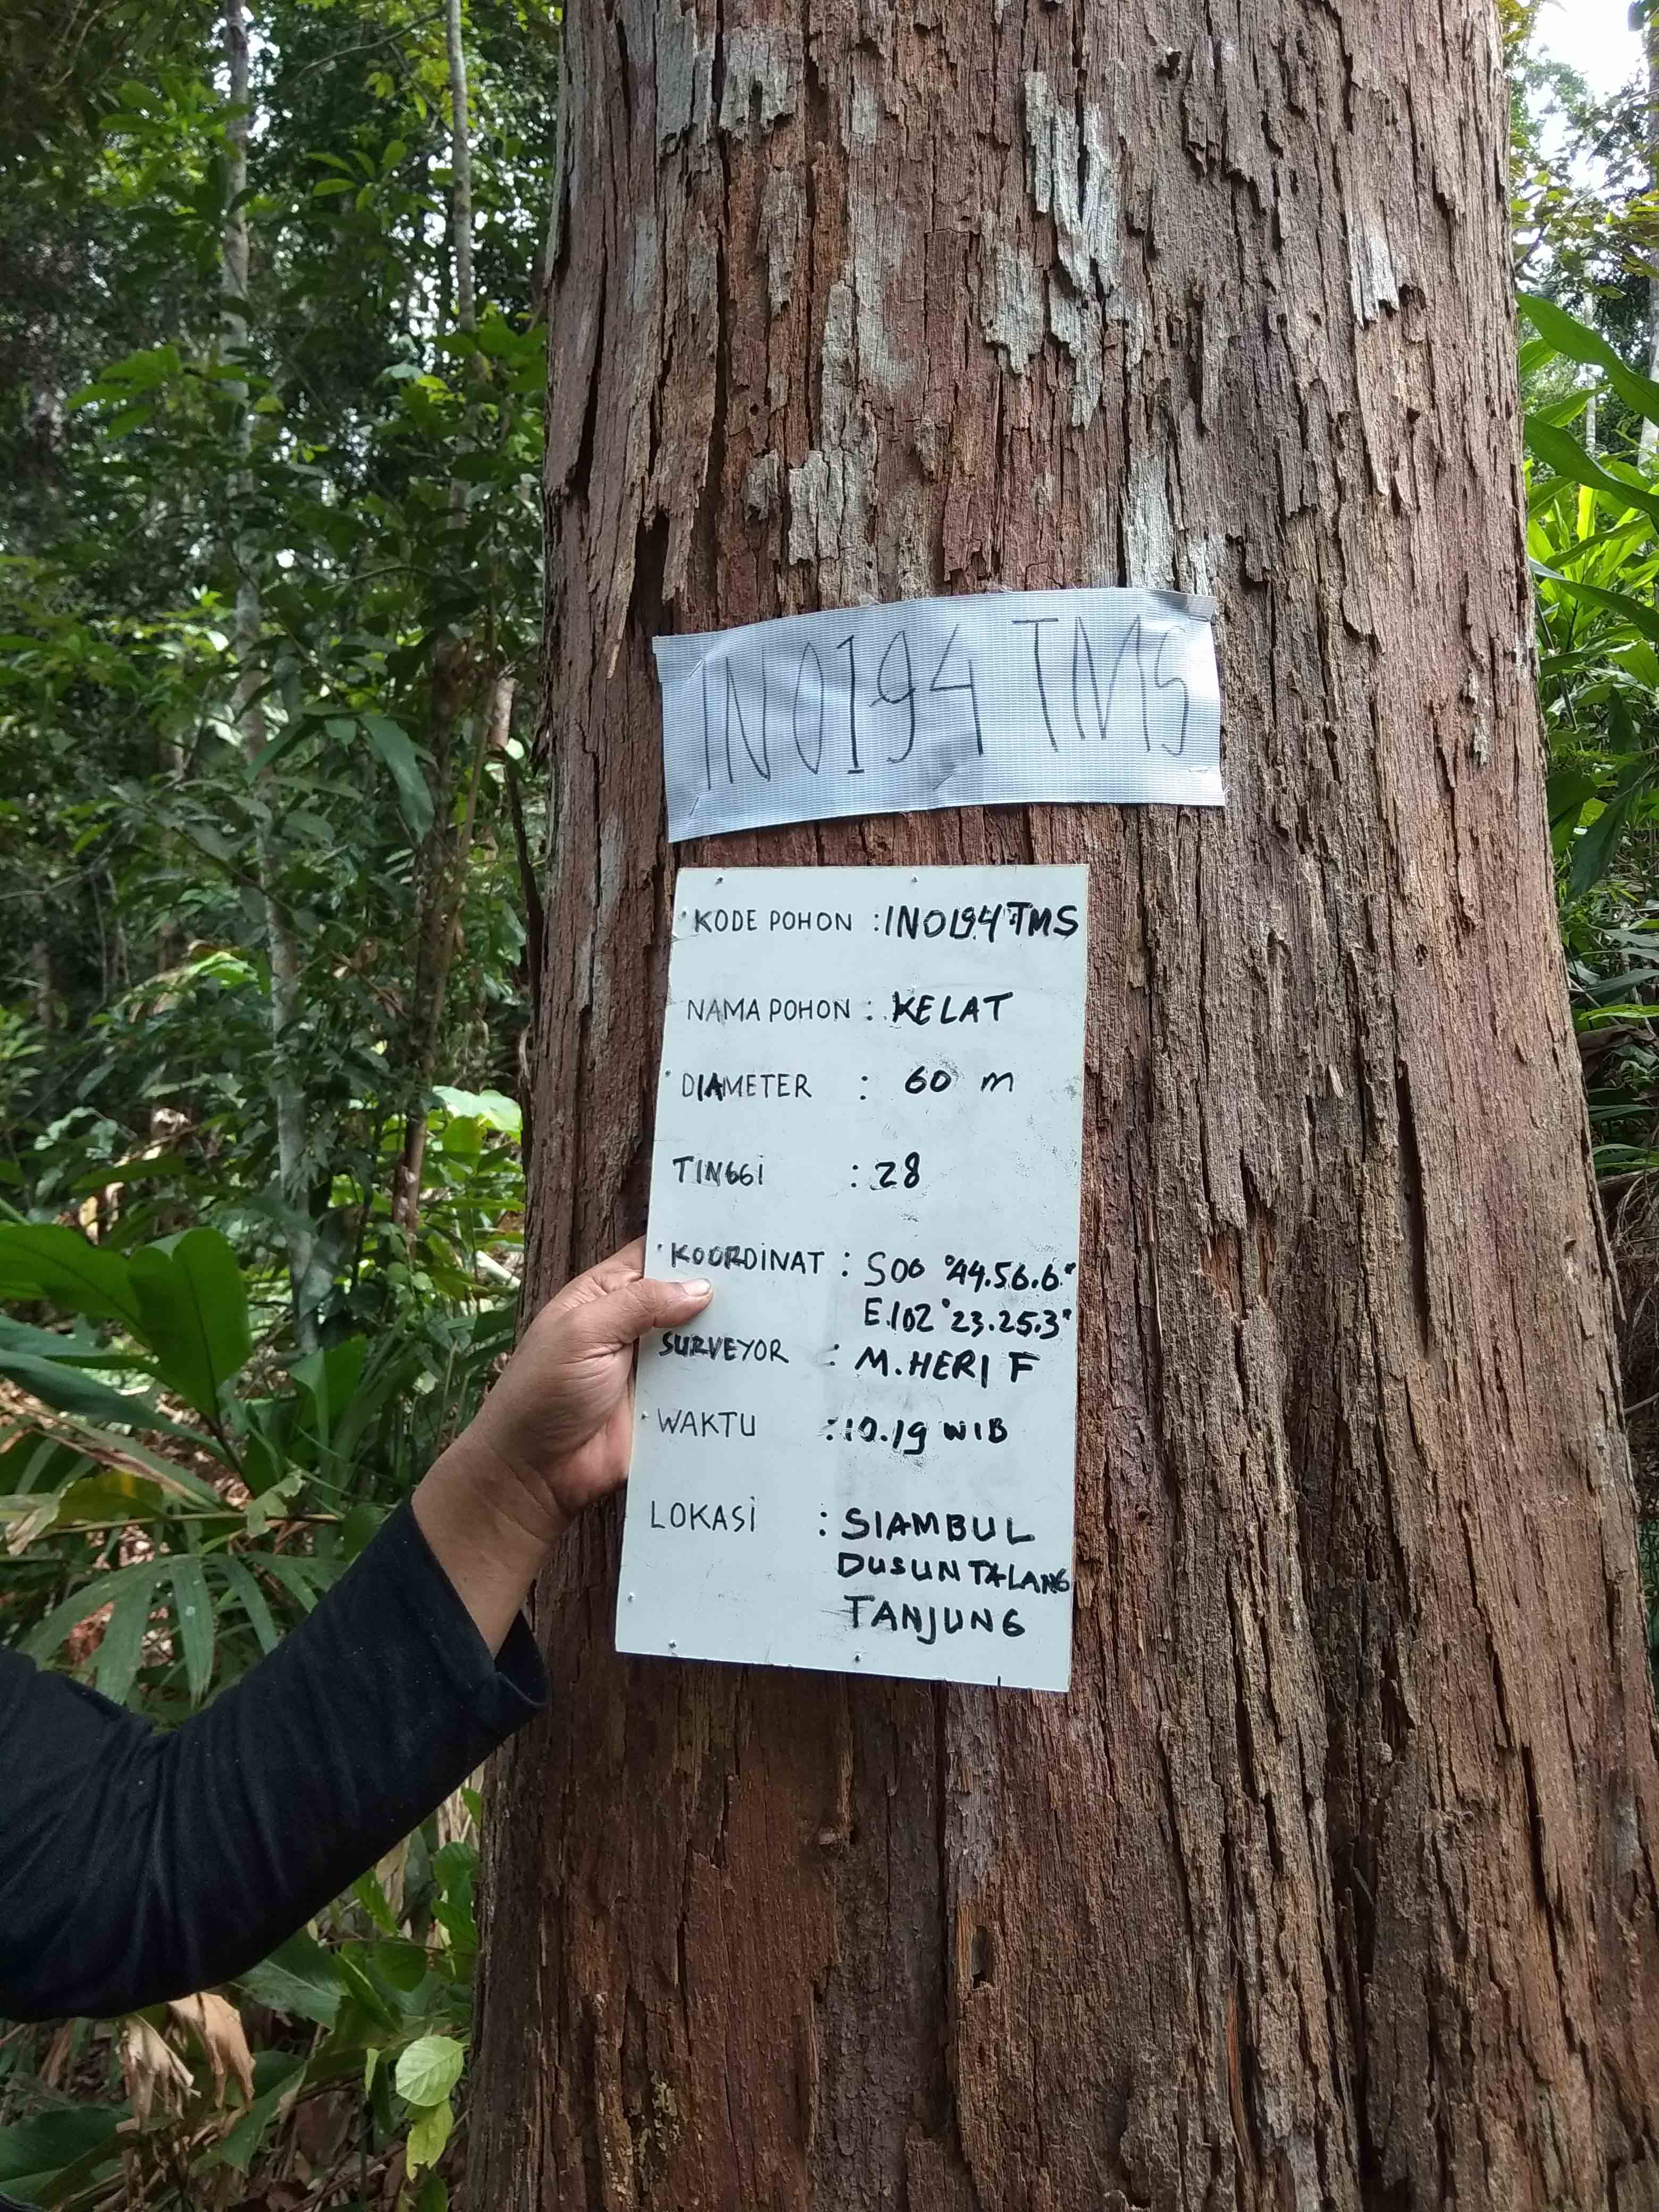 IN0194 TMS
KODE POHON : IN0194 TMS
NAMA POHON : KELAT
DIAMETER : 60 m
TINGGi : 28
KOORDiNAT : S00 °44.56.6."
E.102°23.25.3"
SURVEYOR : M.HERI F
WAKTU : 10.19 WIB
LOKASi : SIAMBUL
DUSUN TALANG
TANJUNG